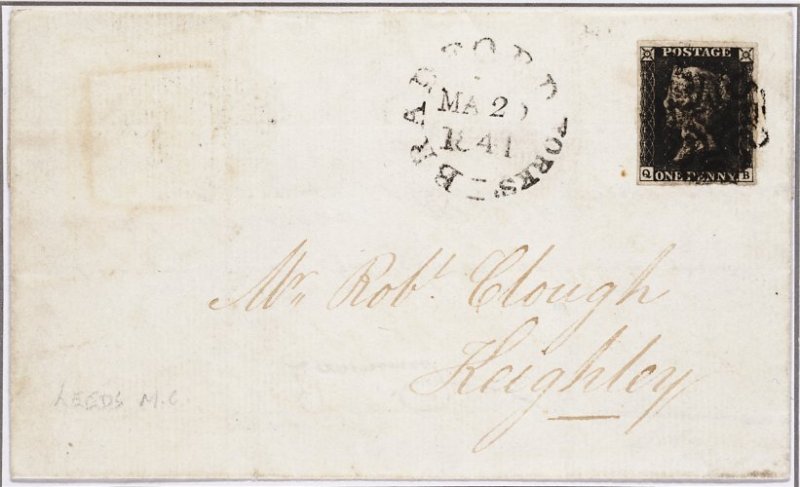 BRADFORD YORKS
MA 2
1841
POSTAGE
Q ONE PENNY B
Mr. Robt. Clough
Keighley
LEEDS M.C.